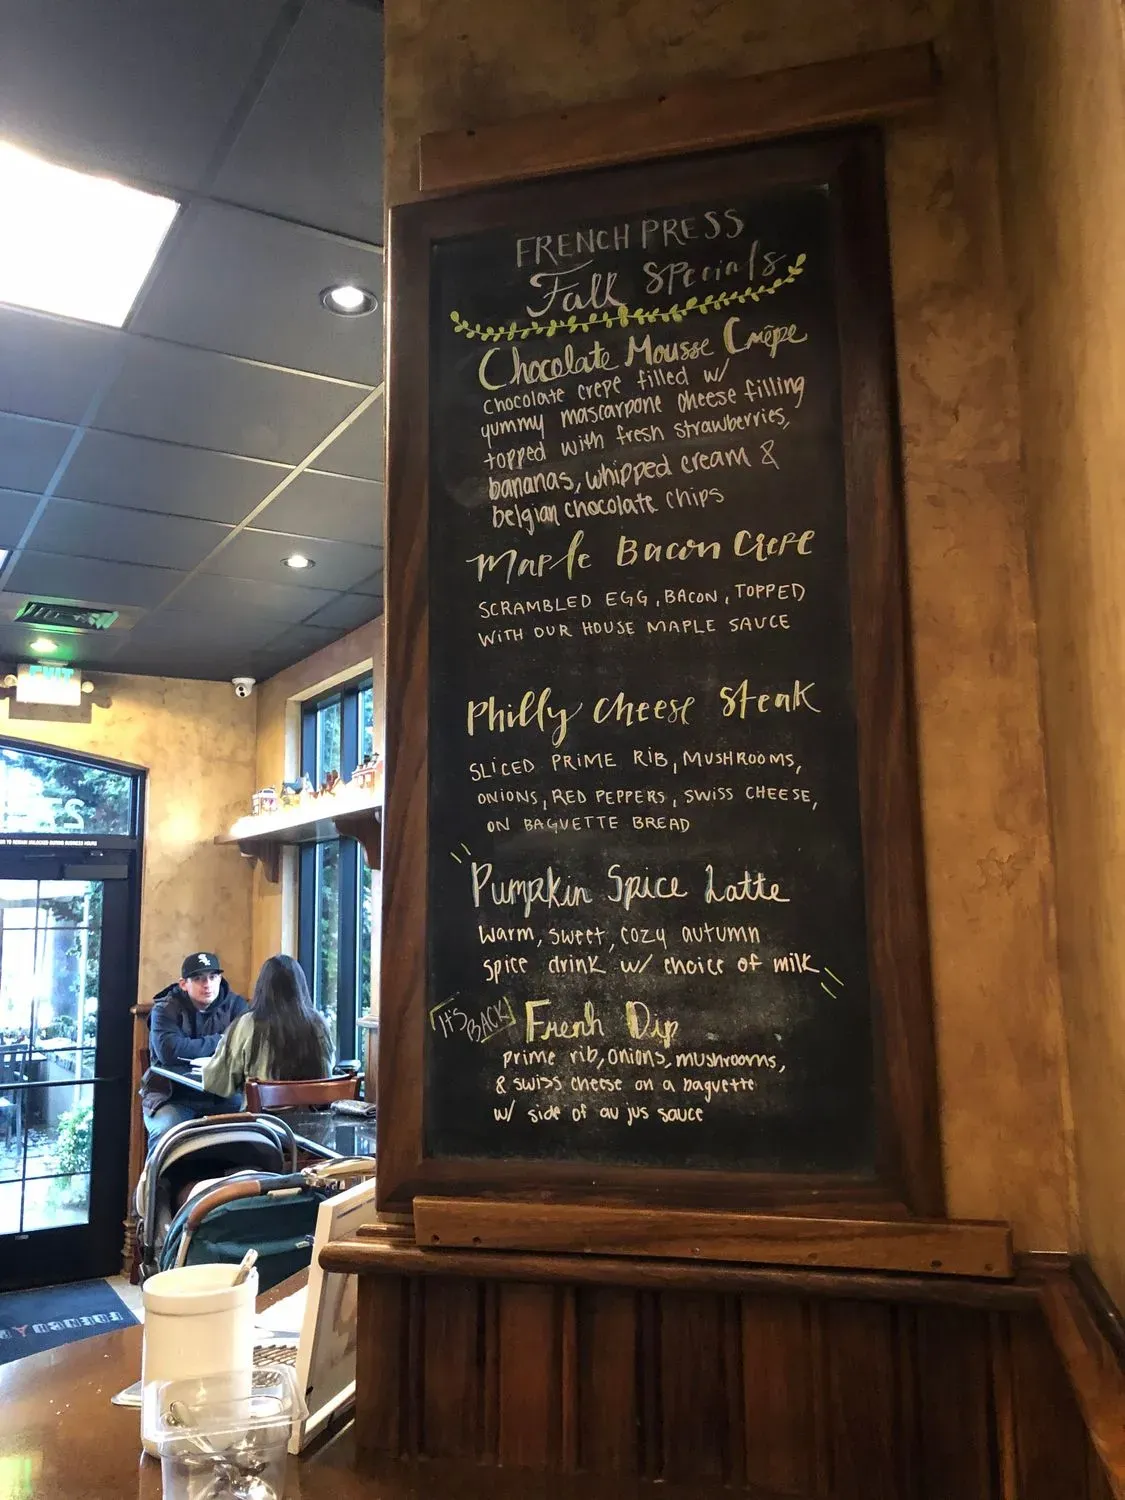 FRENCH PRESS
Fall Specials
Chocolate Mousse Crêpe
chocolate crepe filled w/
yummy mascarpone cheese filling
topped with fresh strawberries,
bananas, whipped cream &
belgian chocolate chips
Maple Bacon Crepe
SCRAMBLED EGG, BACON, TOPPED
WITH OUR HOUSE MAPLE SAUCE
Philly Cheese Steak
SLICED PRIME RIB, MUSHROOMS,
ONIONS, RED PEPPERS, SWISS CHEESE,
ON BAGUETTE BREAD
Pumpkin Spice Latte
warm, sweet, cozy autumn
spice drink w/ choice of milk
IT'S BACK!
French Dip
prime rib, onions, mushrooms,
& swiss cheese on a baguette
w/ side of au jus sauce
EXIT